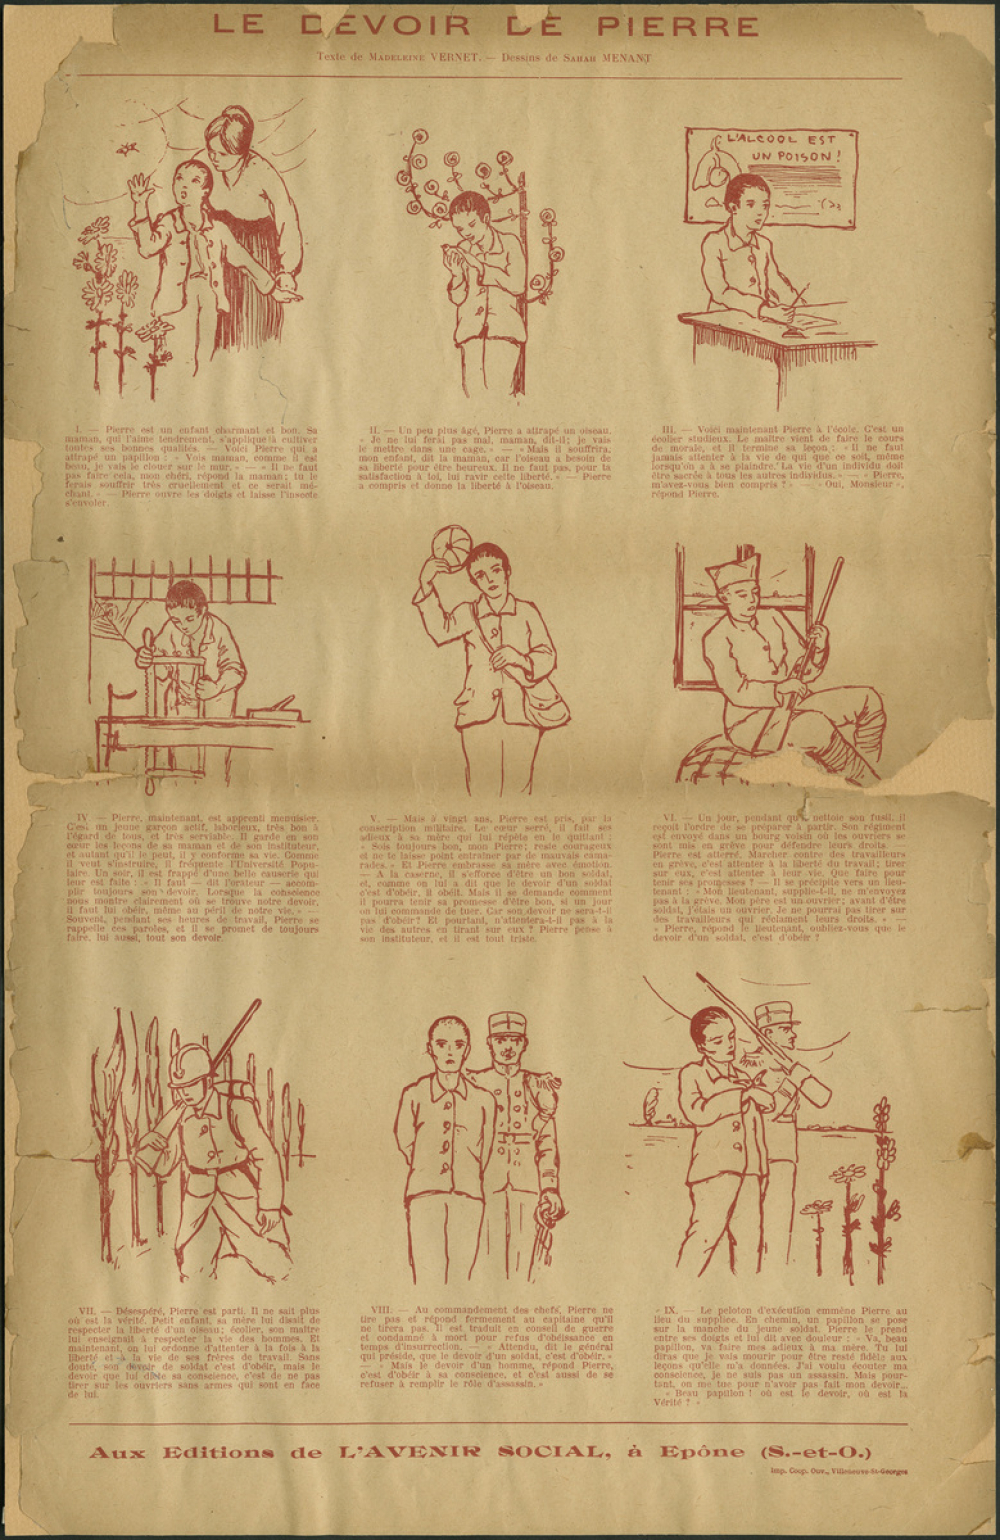 LE DEVOIR DE PIERRE
Texte de MADELEINE VERNET. — Dessins de SARAH MENANT
L'ALCOOL EST
UN POISON !
I. — Pierre est un enfant charmant et bon. Sa
maman, qui l'aime tendrement, s'applique à cultiver
toutes ses bonnes qualités. — Voici Pierre qui a
attrapé un papillon : « Vois maman, comme il est
beau, je vais le clouer sur le mur. » — « Il ne faut
pas faire cela, mon chéri, répond la maman; tu le
ferais souffrir très cruellement et ce serait mé-
chant. » — Pierre ouvre les doigts et laisse l'insecte
s'envoler.
II. — Un peu plus âgé, Pierre a attrapé un oiseau.
« Je ne lui ferai pas mal, maman, dit-il; je vais
le mettre dans une cage. » — « Mais il souffrira,
mon enfant, dit la maman, car l'oiseau a besoin de
sa liberté pour être heureux. Il ne faut pas, pour ta
satisfaction à toi, lui ravir cette liberté. » — Pierre
a compris et donne la liberté à l'oiseau.
III. — Voici maintenant Pierre à l'école. C'est un
écolier studieux. Le maître vient de faire le cours
de morale, et il termine sa leçon : « Il ne faut
jamais attenter à la vie de qui que ce soit, même
lorsqu'on a à se plaindre. La vie d'un individu doit
être sacrée à tous les autres individus. » — « Pierre,
m'avez-vous bien compris ? » — « Oui, Monsieur »,
répond Pierre.
IV — Pierre, maintenant, est apprenti menuisier.
C'est un jeune garçon actif, laborieux, très bon à
l'égard de tous, et très serviable. Il garde en son
cœur les leçons de sa maman et de son instituteur,
et autant qu'il le peut, il y conforme sa vie. Comme
il veut s'instruire, il fréquente l'Université Popu-
laire. Un soir, il est frappé d'une belle causerie qui
leur est faite : « Il faut — dit l'orateur — accom-
plir toujours son devoir. Lorsque la conscience
nous montre clairement où se trouve notre devoir,
il faut lui obéir, même au péril de notre vie. » —
Souvent, pendant ses heures de travail, Pierre se
rappelle ces paroles, et il se promet de toujours
faire, lui aussi, tout son devoir.
V. — Mais à vingt ans, Pierre est pris, par la
conscription militaire. Le cœur serré, il fait ses
adieux à sa mère qui lui répète en le quittant :
« Sois toujours bon, mon Pierre; reste courageux
et ne te laisse point entraîner par de mauvais cama-
rades. » Et Pierre embrasse sa mère avec émotion.
— A la caserne, il s'efforce d'être un bon soldat,
et, comme on lui a dit que le devoir d'un soldat
c'est d'obéir, il obéit. Mais il se demande comment
il pourra tenir sa promesse d'être bon, si un jour
on lui commande de tuer. Car son devoir ne sera-t-il
pas d'obéir? Et pourtant, n'attentera-t-il pas à la
vie des autres en tirant sur eux ? Pierre pense à
son instituteur, et il est tout triste.
VI. — Un jour, pendant qu'il nettoie son fusil, il
reçoit l'ordre de se préparer à partir. Son régiment
est envoyé dans un bourg voisin où les ouvriers se
sont mis en grève pour défendre leurs droits. —
Pierre est atterré. Marcher contre des travailleurs
en grève, c'est attenter à la liberté du travail; tirer
sur eux, c'est attenter à leur vie. Que faire pour
tenir ses promesses ? — Il se précipite vers un lieu-
tenant : « Mon lieutenant, supplie-t-il, ne m'envoyez
pas à la grève. Mon père est un ouvrier; avant d'être
soldat, j'étais un ouvrier. Je ne pourrai pas tirer sur
des travailleurs qui réclament leurs droits. » —
« Pierre, répond le lieutenant, oubliez-vous que le
devoir d'un soldat, c'est d'obéir ?
VII. — Désespéré, Pierre est parti. Il ne sait plus
où est la vérité. Petit enfant, sa mère lui disait de
respecter la liberté d'un oiseau; écolier, son maître
lui enseignait à respecter la vie des hommes. Et
maintenant, on lui ordonne d'attenter à la fois à la
liberté et à la vie de ses frères de travail. Sans
doute, son devoir de soldat c'est d'obéir, mais le
devoir que lui dicte sa conscience, c'est de ne pas
tirer sur les ouvriers sans armes qui sont en face
de lui.
VIII. — Au commandement des chefs, Pierre ne
tire pas et répond fermement au capitaine qu'il
ne tirera pas. Il est traduit en conseil de guerre
et condamné à mort pour refus d'obéissance en
temps d'insurrection. — « Attendu, dit le général
qui préside, que le devoir d'un soldat, c'est d'obéir. »
— « Mais le devoir d'un homme, répond Pierre,
c'est d'obéir à sa conscience, et c'est aussi de se
refuser à remplir le rôle d'assassin. »
IX. — Le peloton d'exécution emmène Pierre au
lieu du supplice. En chemin, un papillon se pose
sur la manche du jeune soldat. Pierre le prend
entre ses doigts et lui dit avec douleur : « Va, beau
papillon, va faire mes adieux à ma mère. Tu lui
diras que je vais mourir pour être resté fidèle aux
leçons qu'elle m'a données. J'ai voulu écouter ma
conscience, je ne suis pas un assassin. Mais pour-
tant, on me tue pour n'avoir pas fait mon devoir...
« Beau papillon ! où est le devoir, où est la
Vérité ? »
Aux Editions de L'AVENIR SOCIAL, à Epône (S.-et-O.)
Imp. Coop. Ouv., Villeneuve-St-Georges